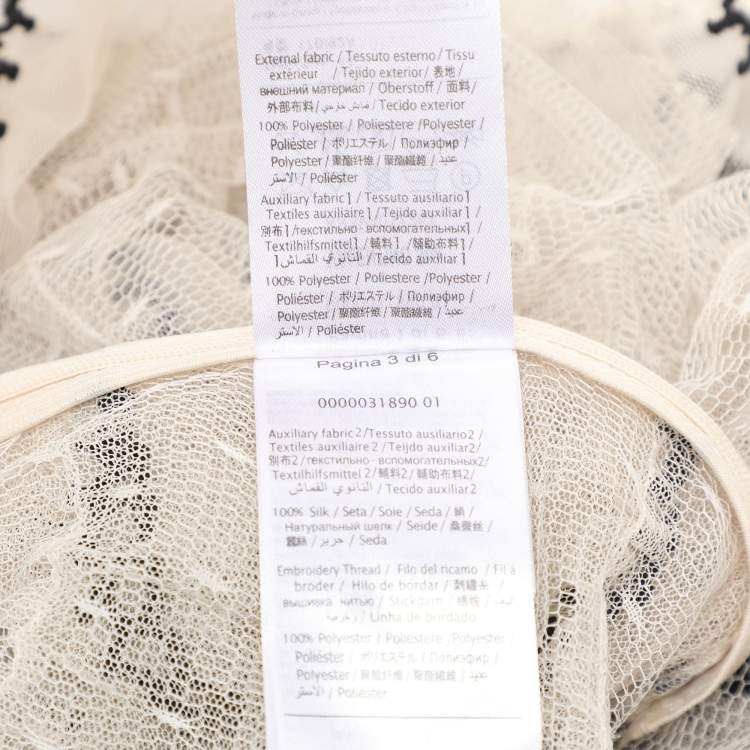 External fabric / Tessuto esterno / Tissu
extérieur / Tejido exterior / 表地 /
внешний материал / Oberstoff / 面料 /
外部布料 / قماش خارجي / Tecido exterior
100% Polyester / Poliestere /Polyester /
Poliéster / ポリエステル / Полиэфир /
Polyester / 聚酯纤维 / 聚酯纖維 / عنيد
الاستر / Poliéster
Auxiliary fabric1 / Tessuto ausiliario1 /
Textiles auxiliaire1 / Tejido auxiliar1 /
別布1 /текстильно - вспомогательных1 /
Textilhilfsmittel1 / 輔料1 / 辅助布料1 /
الثانوي القماش1 / Tecido auxiliar1
100% Polyester / Poliestere /Polyester /
Poliéster / ポリエステル / Полиэфир /
Polyester / 聚酯纤维 / 聚酯纖維 / عنيد
الاستر / Poliéster
Pagina 3 di 6
0000031890 01
Auxiliary fabric2/Tessuto ausiliario2 /
Textiles auxiliaire2 / Teijdo auxiliar2 /
別布2/текстильно - вспомогательных2/
Textilhilfsmittel2 / 輔料2 / 辅助布料2 /
الثانوي القماش / Tecido auxiliar2
100% Silk / Seta / Soie / Seda / 絹 /
Натуральный шелк / Seide / 桑蚕丝 /
蠶絲 / حرير / Seda
Embroidery Thread / Filo del ricamo / Fil à
broder / Hilo de bordar / 刺繡糸 /
вышивка нитью / Stickgarn / 绣线 /
وخرصة / Linha de bordado
100% Polyester / Poliestere /Polyester /
Poliéster / ポリエステル / Полиэфир /
Polyester / 聚酯纤维 / 聚酯纖維 / عنيد
الاستر / Poliéster